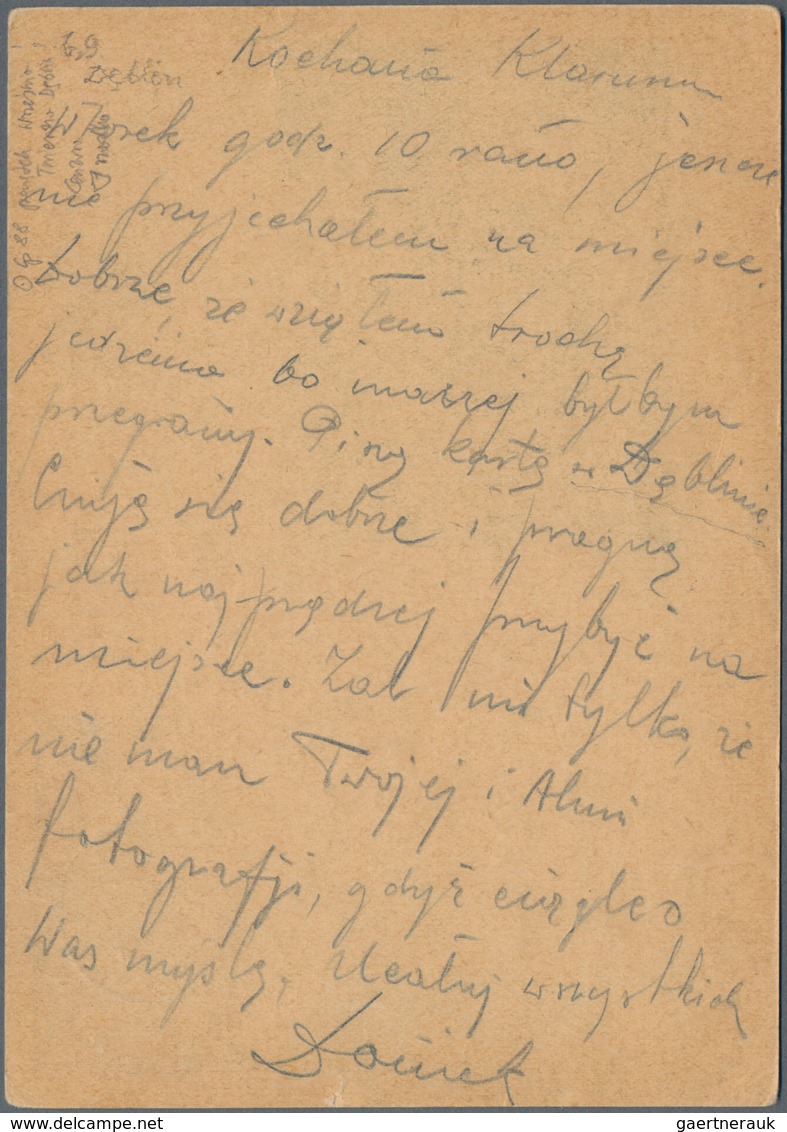 6,9
Dęblin
Kochana Klaruniu
Wtorek godz. 10 rano, jeszcze
nie przyjechałem na miejsce.
Dobrze, że wziąłem trochę
jedzenia bo inaczej byłbym
przegrany. Piszę kartę w Dęblinie.
Czuję się dobrze i pragnę
jak najprędzej przybyć na
miejsce. Żal mi tylko, że
nie mam Twojej i
fotografji, gdyż ciągle o
Was myślę, Ucałuj wszystkich
gaertnerauk